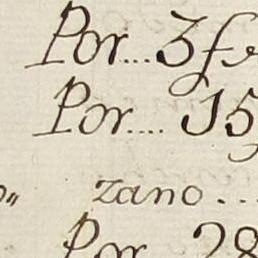 Por....3
Por.... 15
zano...
Por 28